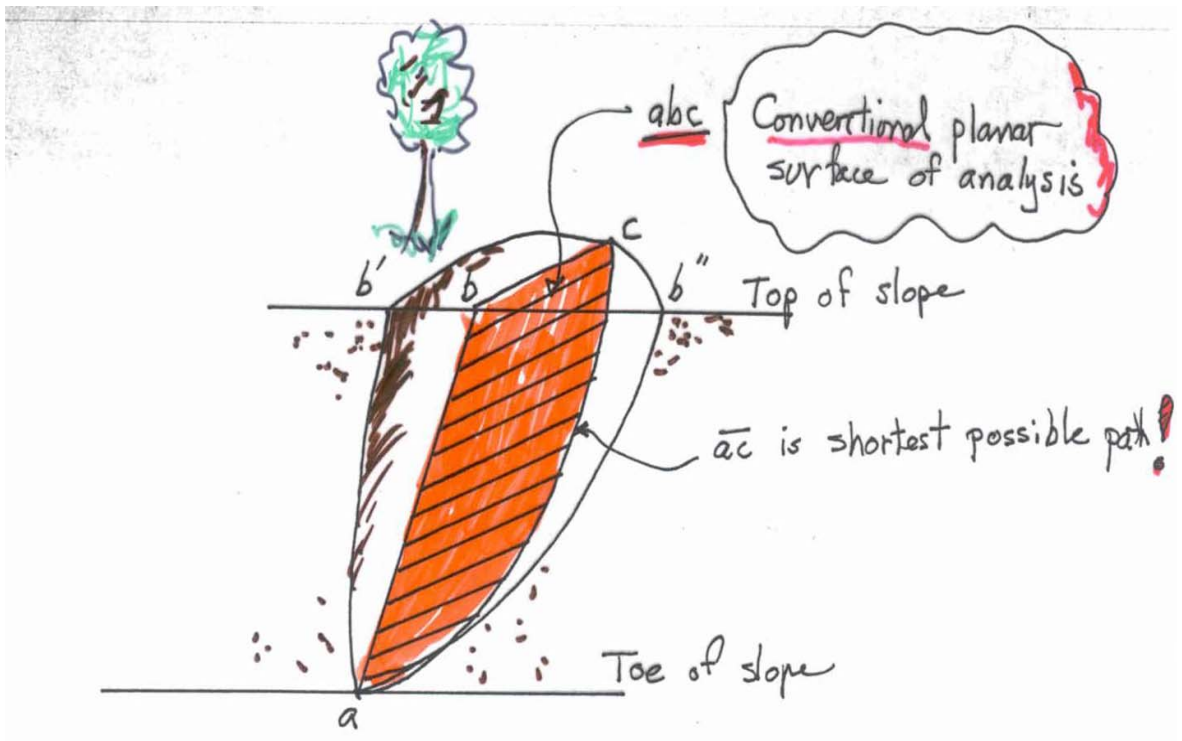 abc
Conventional planar
surface of analysis
c
b'
b
b"
Top of slope
ac is shortest possible path!
Toe of slope
a